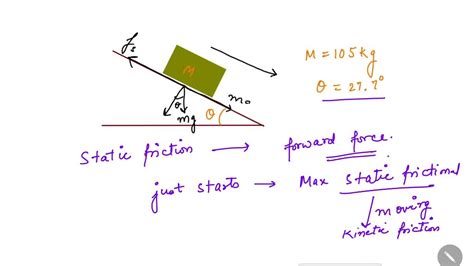 fs
M
M = 105 kg
θ = 27.7°
θ
mg
θ
Static friction → forward force.
just starts → Max static frictional
moving
kinetic friction